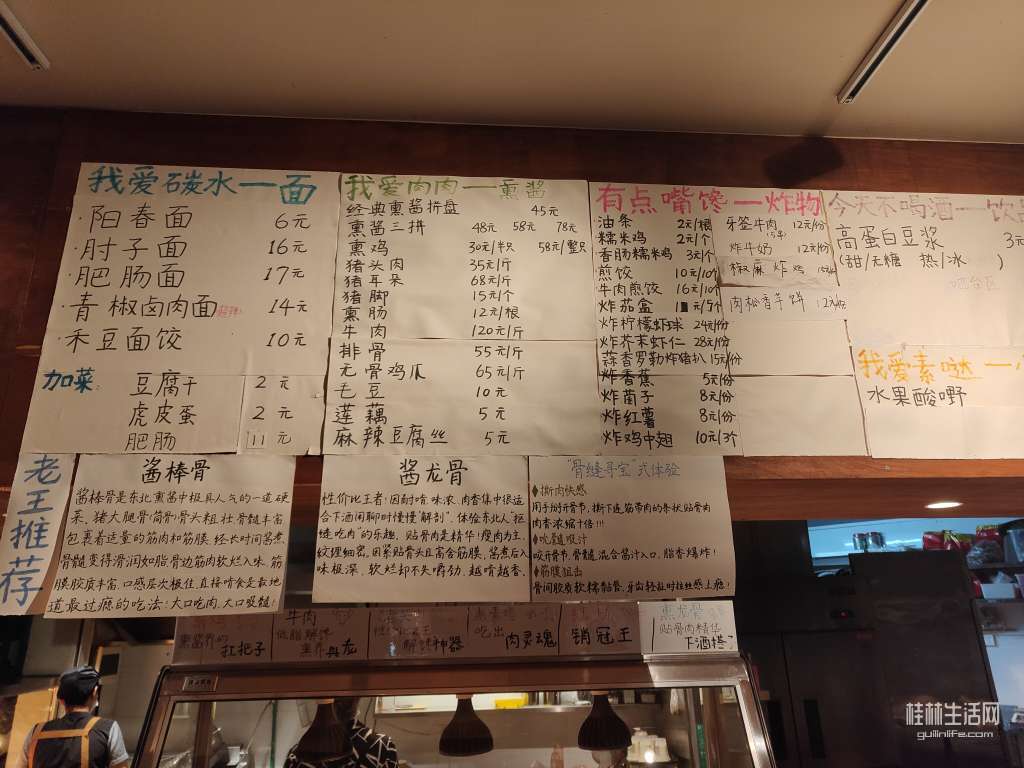 我爱碳水一面
阳春面 6元
肘子面 16元
肥肠面 17元
青椒卤肉面 14元
禾豆面饺 10元
加菜 豆腐干 2元
虎皮蛋 2元
肥肠 11元
我爱肉肉一熏酱
经典熏酱拼盘 45元
熏酱三拼 48元 58元 78元
熏鸡 30元/半只 58元/整只
猪头肉 35元/斤
猪耳朵 68元/斤
猪脚 15元/个
熏肠 12元/根
牛肉 120元/斤
排骨 55元/斤
无骨鸡爪 65元/斤
毛豆 10元
莲藕 5元
麻辣豆腐丝 5元
有点嘴馋一炸物
油条 2元/根
糯米鸡 2元/个
香肠糯米鸡 3元/个
煎饺 10元/10个
牛肉煎饺 16元/10个
炸茄盒 元/5个
炸柠檬虾球 24元/份
炸芥末虾仁 28元/份
蒜香罗勒炸猪扒 15元/份
炸香蕉 5元/份
炸菌子 8元/份
炸红薯 8元/份
炸鸡中翅 10元/3个
牙签牛肉 12元/份
炸牛奶 12元/份
椒麻炸鸡
肉松香芋饼
今天不喝酒一饮品
高蛋白豆浆 3元
(甜/无糖 热/冰 )
我爱素哒一
水果酸嘢
老王推荐
酱棒骨
酱棒骨是东北熏酱中极具人气的一道硬
菜、猪大腿骨(筒骨)骨头粗壮,骨髓丰富
包裹着适量的筋肉和筋膜,经长时间酱煮
骨髓变得滑润如脂骨边筋肉软烂入味,筋
膜胶质丰富,口感层次极佳,直接啃食是最地
道最过瘾的吃法:大口吃肉,大口吸髓!
酱龙骨
性价比王者:因耐啃、味浓、肉香集中很适
合下酒闲聊时慢慢"解剖"、体验东北人"抠
缝吃肉"的乐趣,贴骨肉是精华!瘦肉为主,
纹理细密,因紧贴骨头且富含筋膜,酱煮后入
味极深,软烂却不失嚼劲,越啃越香。
"骨缝寻宝"式体验
◆撕肉快感
用手掰开骨节,撕下连筋带肉的条状贴骨肉
肉香浓缩十倍!!!
◆吮髓吸汁
咬开骨节,骨髓混合酱汁入口,脂香爆炸!
◆筋膜狙击
骨间胶质软糯黏唇,牙齿轻扯时拉丝感上瘾!
熏酱界的扛把子
牛肉
低脂解馋
解馋神器
吃出肉灵魂
销冠王
熏龙骨
贴骨肉精华
下酒搭子
桂林生活网
guilinlife.com